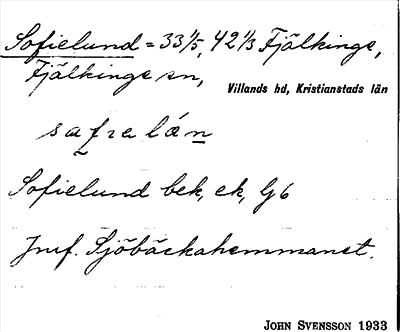 Sofielund = 33 1/5, 42 1/3 Fjälkinge,
Fjälkinge sn,
Villands hd, Kristianstads län
safielán
Sofielund bek, ek, Gb
Jmf. Sjöbäckahemmanet.
JOHN SVENSSON 1933